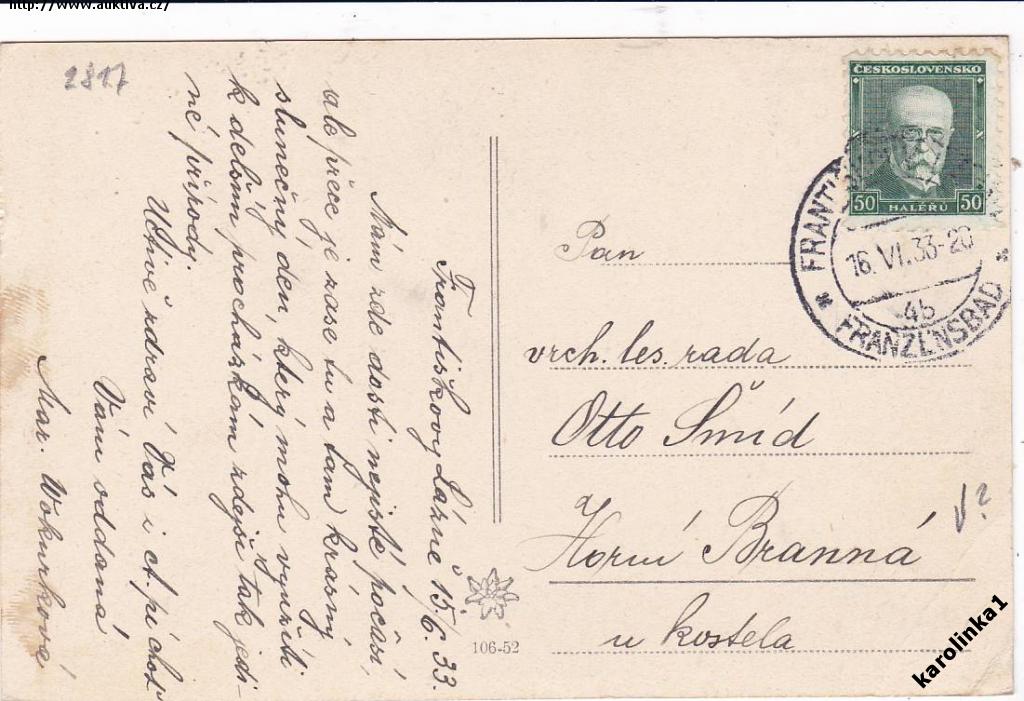 http://www.auktiva.cz/
2817
Františkovy Lázně 15/6. 33.
Mám zde dosti nejisté počasí,
ale přece je zase tu a tam krásný
slunečný den, který mohu využíti
k delším procházkám zdejší tak jedi-
né přírody.
Uctivě zdraví Vás i ct. pí choť
Vám oddaná
Mar. Wokurková
106-52
ČESKOSLOVENSKO
50 HALÉŘŮ 50
16. VI. 33-20
4b
* FRANZENSBAD *
Pan
vrch. les. rada
Otto Šmíd
Horní Branná
u kostela
V?
karolinka1